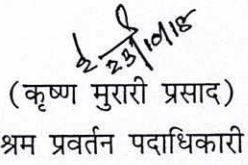 23/10/18
(कृष्ण मुरारी प्रसाद)
श्रम प्रवर्तन पदाधिकारी